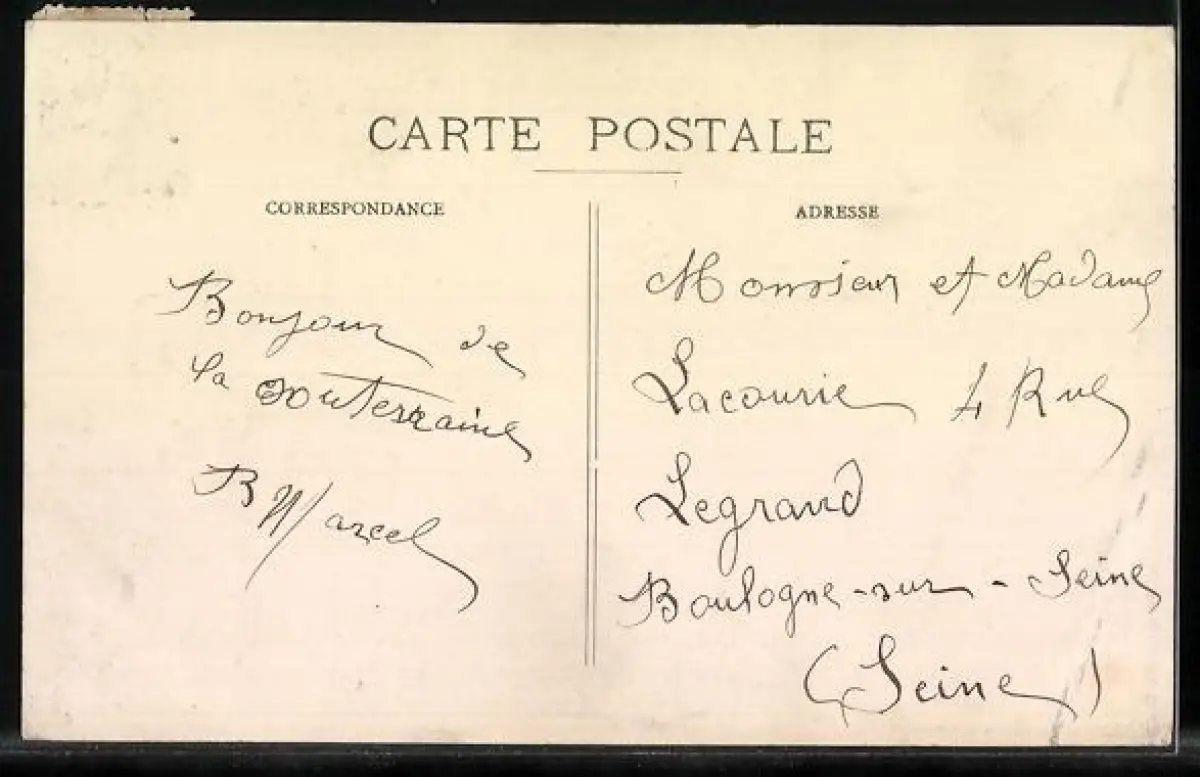 CARTE POSTALE
CORRESPONDANCE
Bonjour de
la Souterraine
B Marcel
ADRESSE
Monsieur et Madame
Lacourie 4 Rue
Legrand
Boulogne-sur-Seine
(Seine)